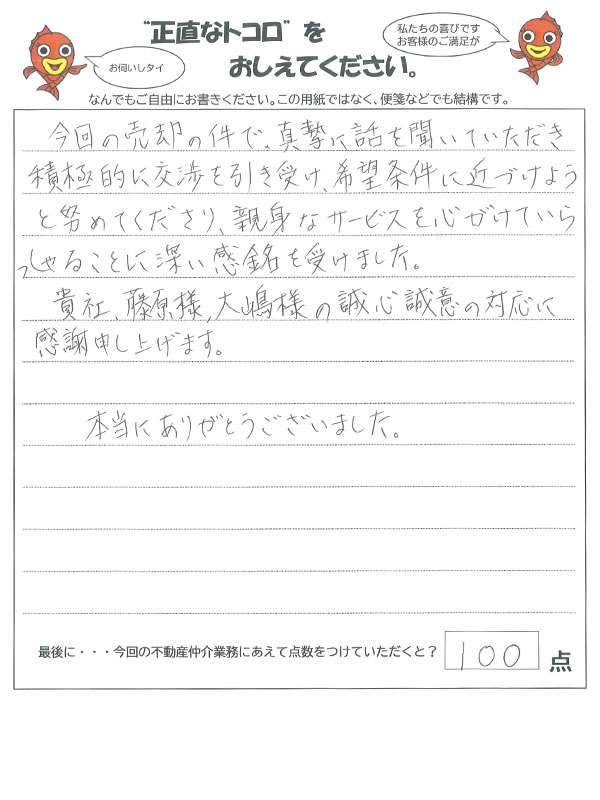 "正直なトコロ"を
おしえてください。
お伺いしタイ
私たちの喜びです
お客様のご満足が
なんでもご自由にお書きください。この用紙ではなく、便箋などでも結構です。
今回の売却の件で、真摯に話を聞いていただき
積極的に交渉を引き受け、希望条件に近づけよう
と努めてくださり、親身なサービスを心がけていら
っしゃることに深い感銘を受けました。
貴社、藤原様、大嶋様の誠心誠意の対応に
感謝申し上げます。
本当にありがとうございました。
最後に・・・今回の不動産仲介業務にあえて点数をつけていただくと?
100 点